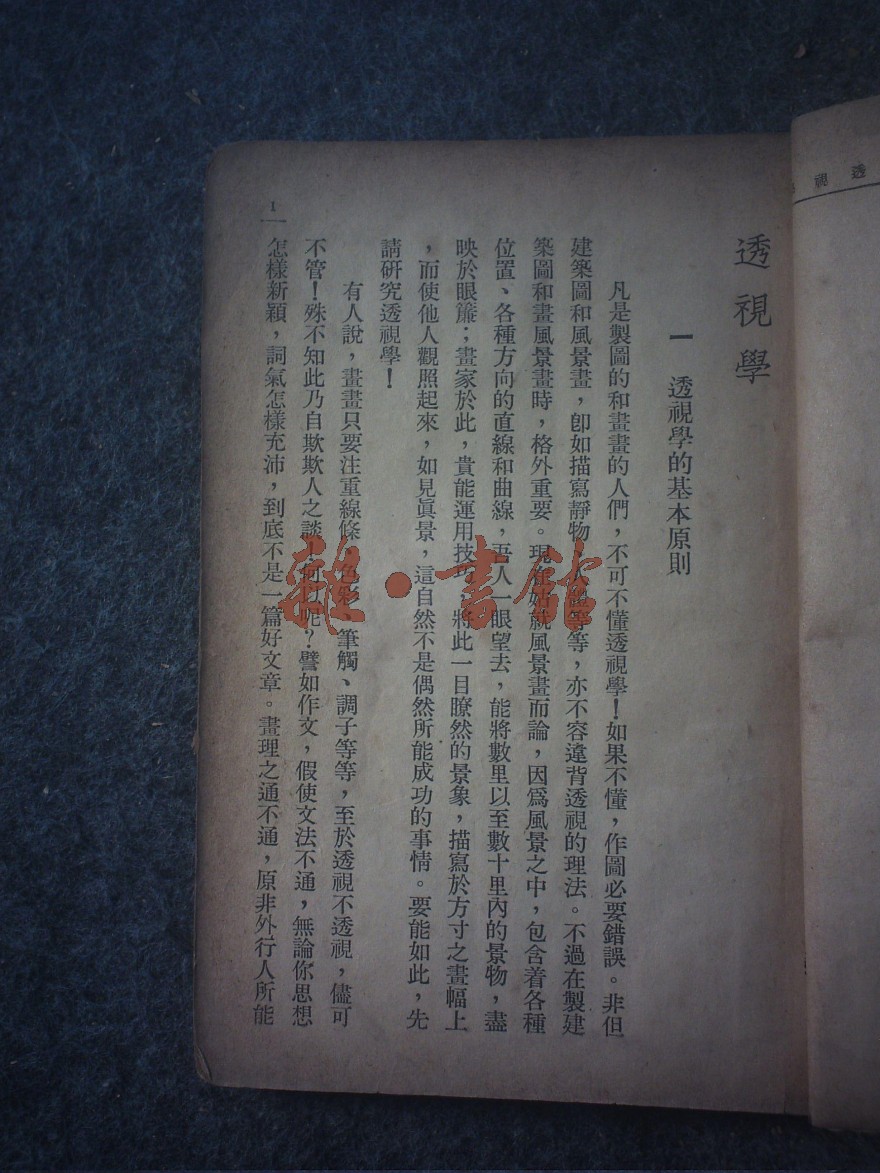 透視學
一　透視學的基本原則
凡是製圖的和畫畫的人們，不可不懂透視學！如果不懂，作圖必要錯誤。非但
建築圖和風景畫，卽如描寫靜物、人體等等，亦不容違背透視的理法。不過在製建
築圖和畫風景畫時，格外重要。現在姑就風景畫而論，因爲風景之中，包含着各種
位置、各種方向的直線和曲線，吾人一眼望去，能將數里以至數十里內的景物，盡
映於眼簾；畫家於此，貴能運用技巧，將此一目瞭然的景象，描寫於方寸之畫幅上
，而使他人觀照起來，如見眞景，這自然不是偶然所能成功的事情。要能如此，先
請研究透視學！
有人說，畫畫只要注重線條、色彩、筆觸、調子等等，至於透視不透視，儘可
不管！殊不知此乃自欺欺人之談！何以呢？譬如作文，假使文法不通，無論你思想
怎樣新穎，詞氣怎樣充沛，到底不是一篇好文章。畫理之通不通，原非外行人所能
1
透視
雜·書館